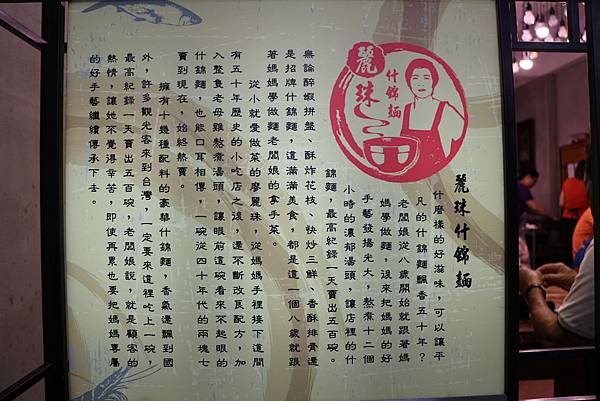 麗珠什錦麵
麗珠
什錦麵
什麼樣的好滋味，可以讓平
凡的什錦麵飄香五十年？
老闆娘從八歲開始就跟著媽
媽學做麵，後來把媽媽的好
手藝發揚光大，熬煮十二個
小時的濃郁湯頭，讓店裡的什
錦麵，最高紀錄一天賣出五百碗。
無論醉蝦拼盤、酥炸花枝、快炒三鮮、香酥排骨還
是招牌什錦麵，這滿滿美食，都是這一個八歲就跟
著媽媽學做麵老闆娘的拿手菜。
從小就愛做菜的廖麗珠，從媽媽手裡接下這間
有五十年歷史的小吃店之後，還不斷改良配方，加
入整隻老母雞熬煮湯頭，讓眼前這碗看來不起眼的
什錦麵，也能口耳相傳，一碗從四十年代的兩塊七
賣到現在，始終熱賣。
擁有十幾種配料的豪華什錦麵，香氣還飄到國
外，許多觀光客來到台灣，一定要來這裡吃上一碗，
最高紀錄一天賣出五百碗，老闆娘說，就是顧客的
熱情，讓她不覺得辛苦，即使再累也要把媽媽專屬
的好手藝繼續傳承下去。